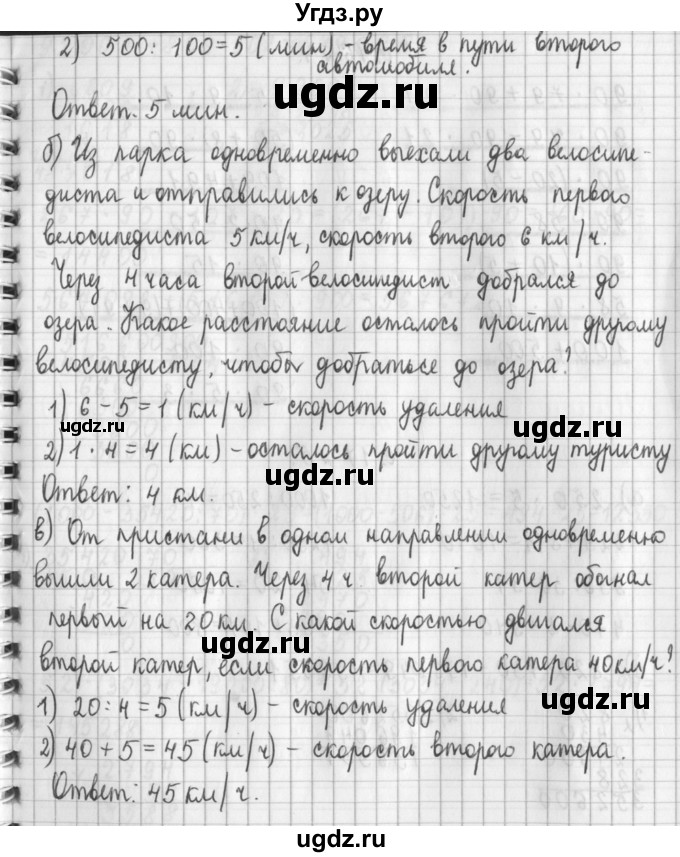 Угдз.ру
2) 500 : 100 = 5 (мин) - время в пути второго
автомобиля.
ugdz.ru
Ответ: 5 мин.
ugdz.ru
б) Из парка одновременно выехали два велосипе-
диста и отправились к озеру. Скорость первого
велосипедиста 5 км/ч, скорость второго 6 км/ч.
Через 4 часа второй велосипедист добрался до
озера. Какое расстояние осталось пройти другому
велосипедисту, чтобы добраться до озера?
ugdz.ru
1) 6 - 5 = 1 (км/ч) - скорость удаления
ugdz.ru
ugdz.ru
2) 1 · 4 = 4 (км) - осталось пройти другому туристу
ugdz.ru
Ответ: 4 км.
ugdz.ru
в) От пристани в одном направлении одновременно
вышли 2 катера. Через 4 ч второй катер обогнал
первый на 20 км. С какой скоростью двигался
ugdz.ru
второй катер, если скорость первого катера 40 км/ч?
ugdz.ru
1) 20 : 4 = 5 (км/ч) - скорость удаления
2) 40 + 5 = 45 (км/ч) - скорость второго катера.
Ответ: 45 км/ч.
ugdz.ru